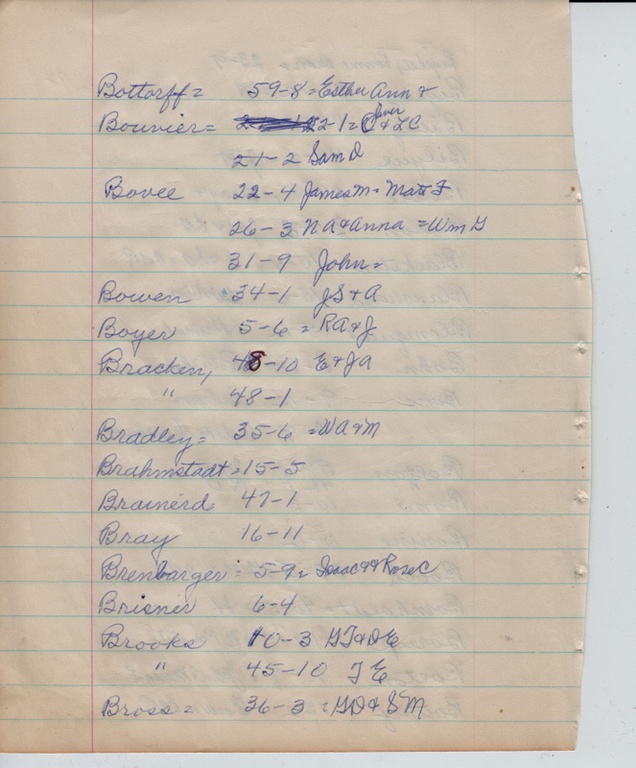 Bottorff = 59-8 = Esther Ann &
Bouvier = 22-1 = Oliver & LC
21-2 Sam D
Bovee 22-4 James M = Matt F
26-3 NA & Anna = Wm G
31-9 John =
Bowen 34-1 JS & A
Boyer 5-6 = RA & J
Bracken, 48-10 E & JA
" 48-1
Bradley = 35-6 = WA & M
Brahmstadt = 15-5
Brainerd 47-1
Bray 16-11
Brenbarger = 5-9 = Isaac & Rose C
Brisner 6-4
Brooks 10-3 GT & DE
" 45-10 TE
Bross = 36-3 = GD & SM